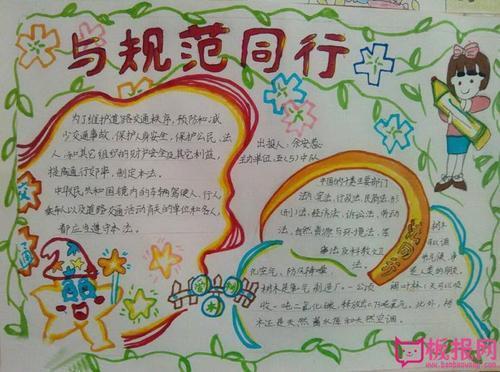 与规范同行
为了维护道路交通秩序,预防和减
少交通事故,保护人身安全,保护公民、法
人和其它组织的财产安全及其它利益,
提高通行效率,制定本法。
中华人民共和国境内的车辆驾驶人、行人、
乘车人以及道路交通活动有关的单位和各人,
都应当遵守本法。
出报人:
主办单位:五(5)中队
中国的十大主要部门
法:宪法、行政法、民商法、刑
法、经济法、诉讼法、劳动
法、自然资源与环境法、军
事法及科教文卫
法。
树木
可以调
节气候,净
化空气、防风降噪
是人类的朋友,
树木是氧气制造厂,一公顷
阔叶林1天可以吸
收一吨二氧化碳,释放氧0.7吨氧气。此外,树
木还是天然蓄水库和天然空调。
板报网
www.banbaowang.com